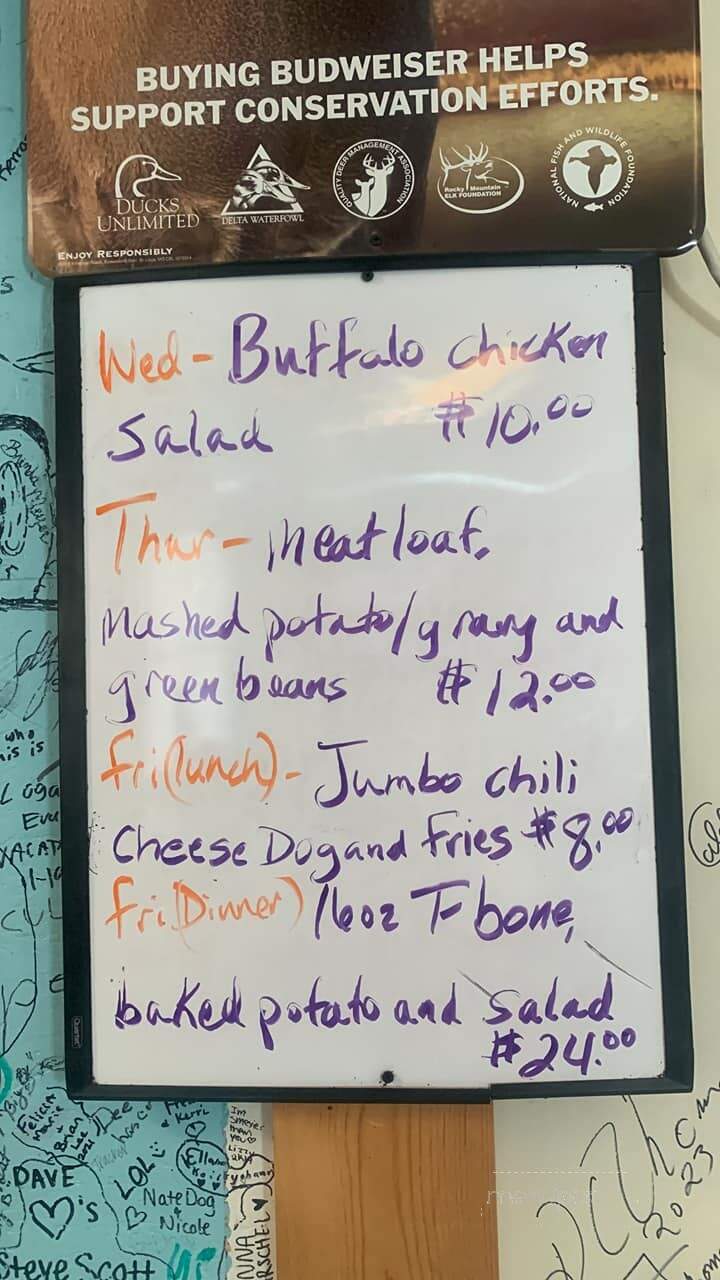 BUYING BUDWEISER HELPS
SUPPORT CONSERVATION EFFORTS.
DUCKS
UNLIMITED
DELTA WATERFOWL
QUALITY DEER MANAGEMENT ASSOCIATION
Rocky Mountain
ELK FOUNDATION
NATIONAL FISH AND WILDLIFE FOUNDATION
ENJOY RESPONSIBLY
Wed - Buffalo chicken
Salad $10.00
Thur - Meatloaf,
Mashed potato/gravy and
green beans $12.00
fri(lunch) - Jumbo chili
Cheese Dog and fries $8.00
fri(Dinner) 16oz T-bone,
baked potato and salad
$24.00
Quartet
who
his is
Felicia
Marie
Brian
Lee
DAVE
♡'s
LOL
Nate Dog
&
Nicole
Steve Scott
2023